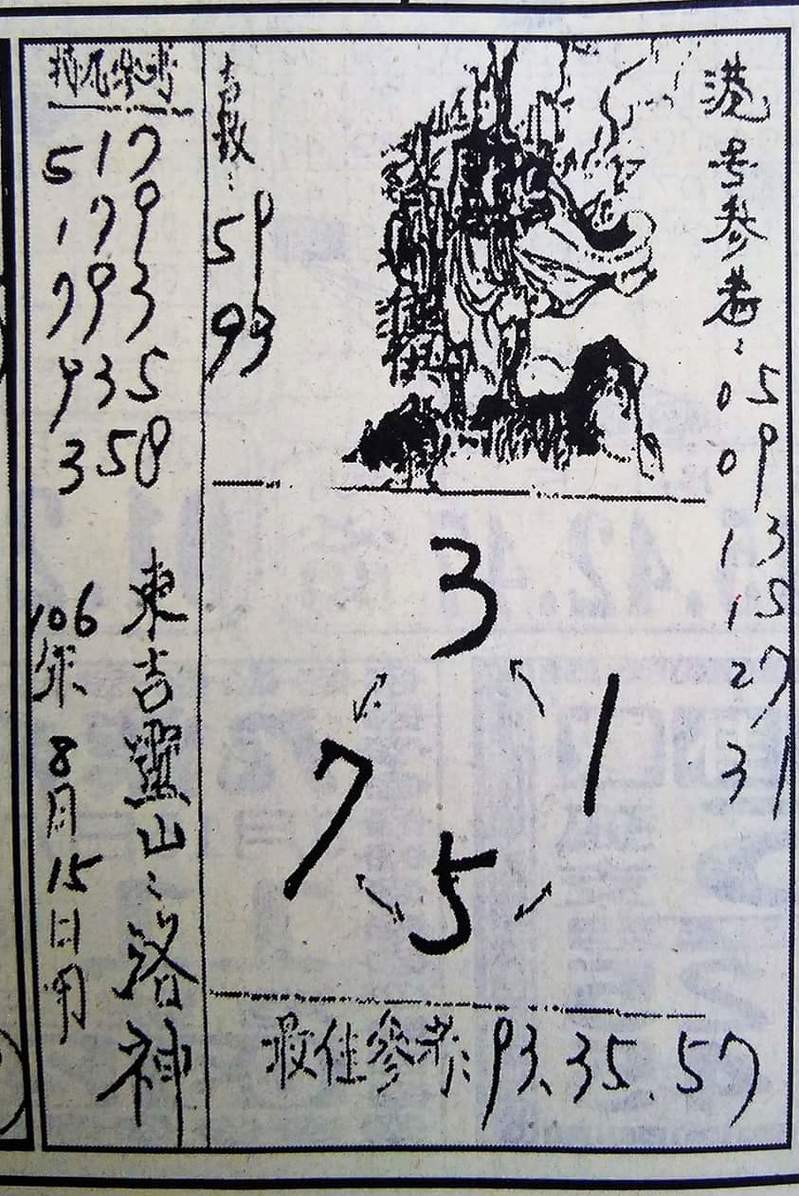 港号參考:
05
09
13
15
27
31
吉数:
59
93
3
1
7
5
最佳參考:93、35、57
特尾參考
517
179
793
935
358
東吉靈山:洛神
106年8月15日用